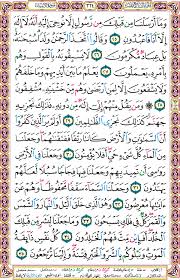 وَمَآ أَرْسَلْنَا مِن قَبْلِكَ مِن رَّسُولٍ إِلَّا نُوحِىٓ إِلَيْهِ أَنَّهُۥ لَآ إِلَٰهَ
إِلَّآ أَنَا۠ فَٱعْبُدُونِ ٢٥ وَقَالُوا۟ ٱتَّخَذَ ٱلرَّحْمَٰنُ وَلَدًا سُبْحَٰنَهُۥ
بَلْ عِبَادٌ مُّكْرَمُونَ ٢٦ لَا يَسْبِقُونَهُۥ بِٱلْقَوْلِ وَهُم
بِأَمْرِهِۦ يَعْمَلُونَ ٢٧ يَعْلَمُ مَا بَيْنَ أَيْدِيهِمْ وَمَا خَلْفَهُمْ
وَلَا يَشْفَعُونَ إِلَّا لِمَنِ ٱرْتَضَىٰ وَهُم مِّنْ خَشْيَتِهِۦ مُشْفِقُونَ
٢٨ وَمَن يَقُلْ مِنْهُمْ إِنِّىٓ إِلَٰهٌ مِّن دُونِهِۦ فَذَٰلِكَ نَجْزِيهِ
جَهَنَّمَ كَذَٰلِكَ نَجْزِى ٱلظَّٰلِمِينَ ٢٩ أَوَلَمْ يَرَ ٱلَّذِينَ كَفَرُوٓا۟
أَنَّ ٱلسَّمَٰوَٰتِ وَٱلْأَرْضَ كَانَتَا رَتْقًا فَفَتَقْنَٰهُمَا وَجَعَلْنَا
مِنَ ٱلْمَآءِ كُلَّ شَىْءٍ حَىٍّ أَفَلَا يُؤْمِنُونَ ٣٠ وَجَعَلْنَا فِى ٱلْأَرْضِ
رَوَٰسِىَ أَن تَمِيدَ بِهِمْ وَجَعَلْنَا فِيهَا فِجَاجًا سُبُلًا لَّعَلَّهُمْ
يَهْتَدُونَ ٣١ وَجَعَلْنَا ٱلسَّمَآءَ سَقْفًا مَّحْفُوظًا وَهُمْ عَنْ ءَايَٰتِهَا
مُعْرِضُونَ ٣٢ وَهُوَ ٱلَّذِى خَلَقَ ٱلَّيْلَ وَٱلنَّهَارَ وَٱلشَّمْسَ
وَٱلْقَمَرَ كُلٌّ فِى فَلَكٍ يَسْبَحُونَ ٣٣ وَمَا جَعَلْنَا لِبَشَرٍ مِّن قَبْلِكَ
ٱلْخُلْدَ أَفَإِي۟ن مِّتَّ فَهُمُ ٱلْخَٰلِدُونَ ٣٤ كُلُّ نَفْسٍ ذَآئِقَةُ
ٱلْمَوْتِ وَنَبْلُوكُم بِٱلشَّرِّ وَٱلْخَيْرِ فِتْنَةً وَإِلَيْنَا تُرْجَعُونَ ٣٥